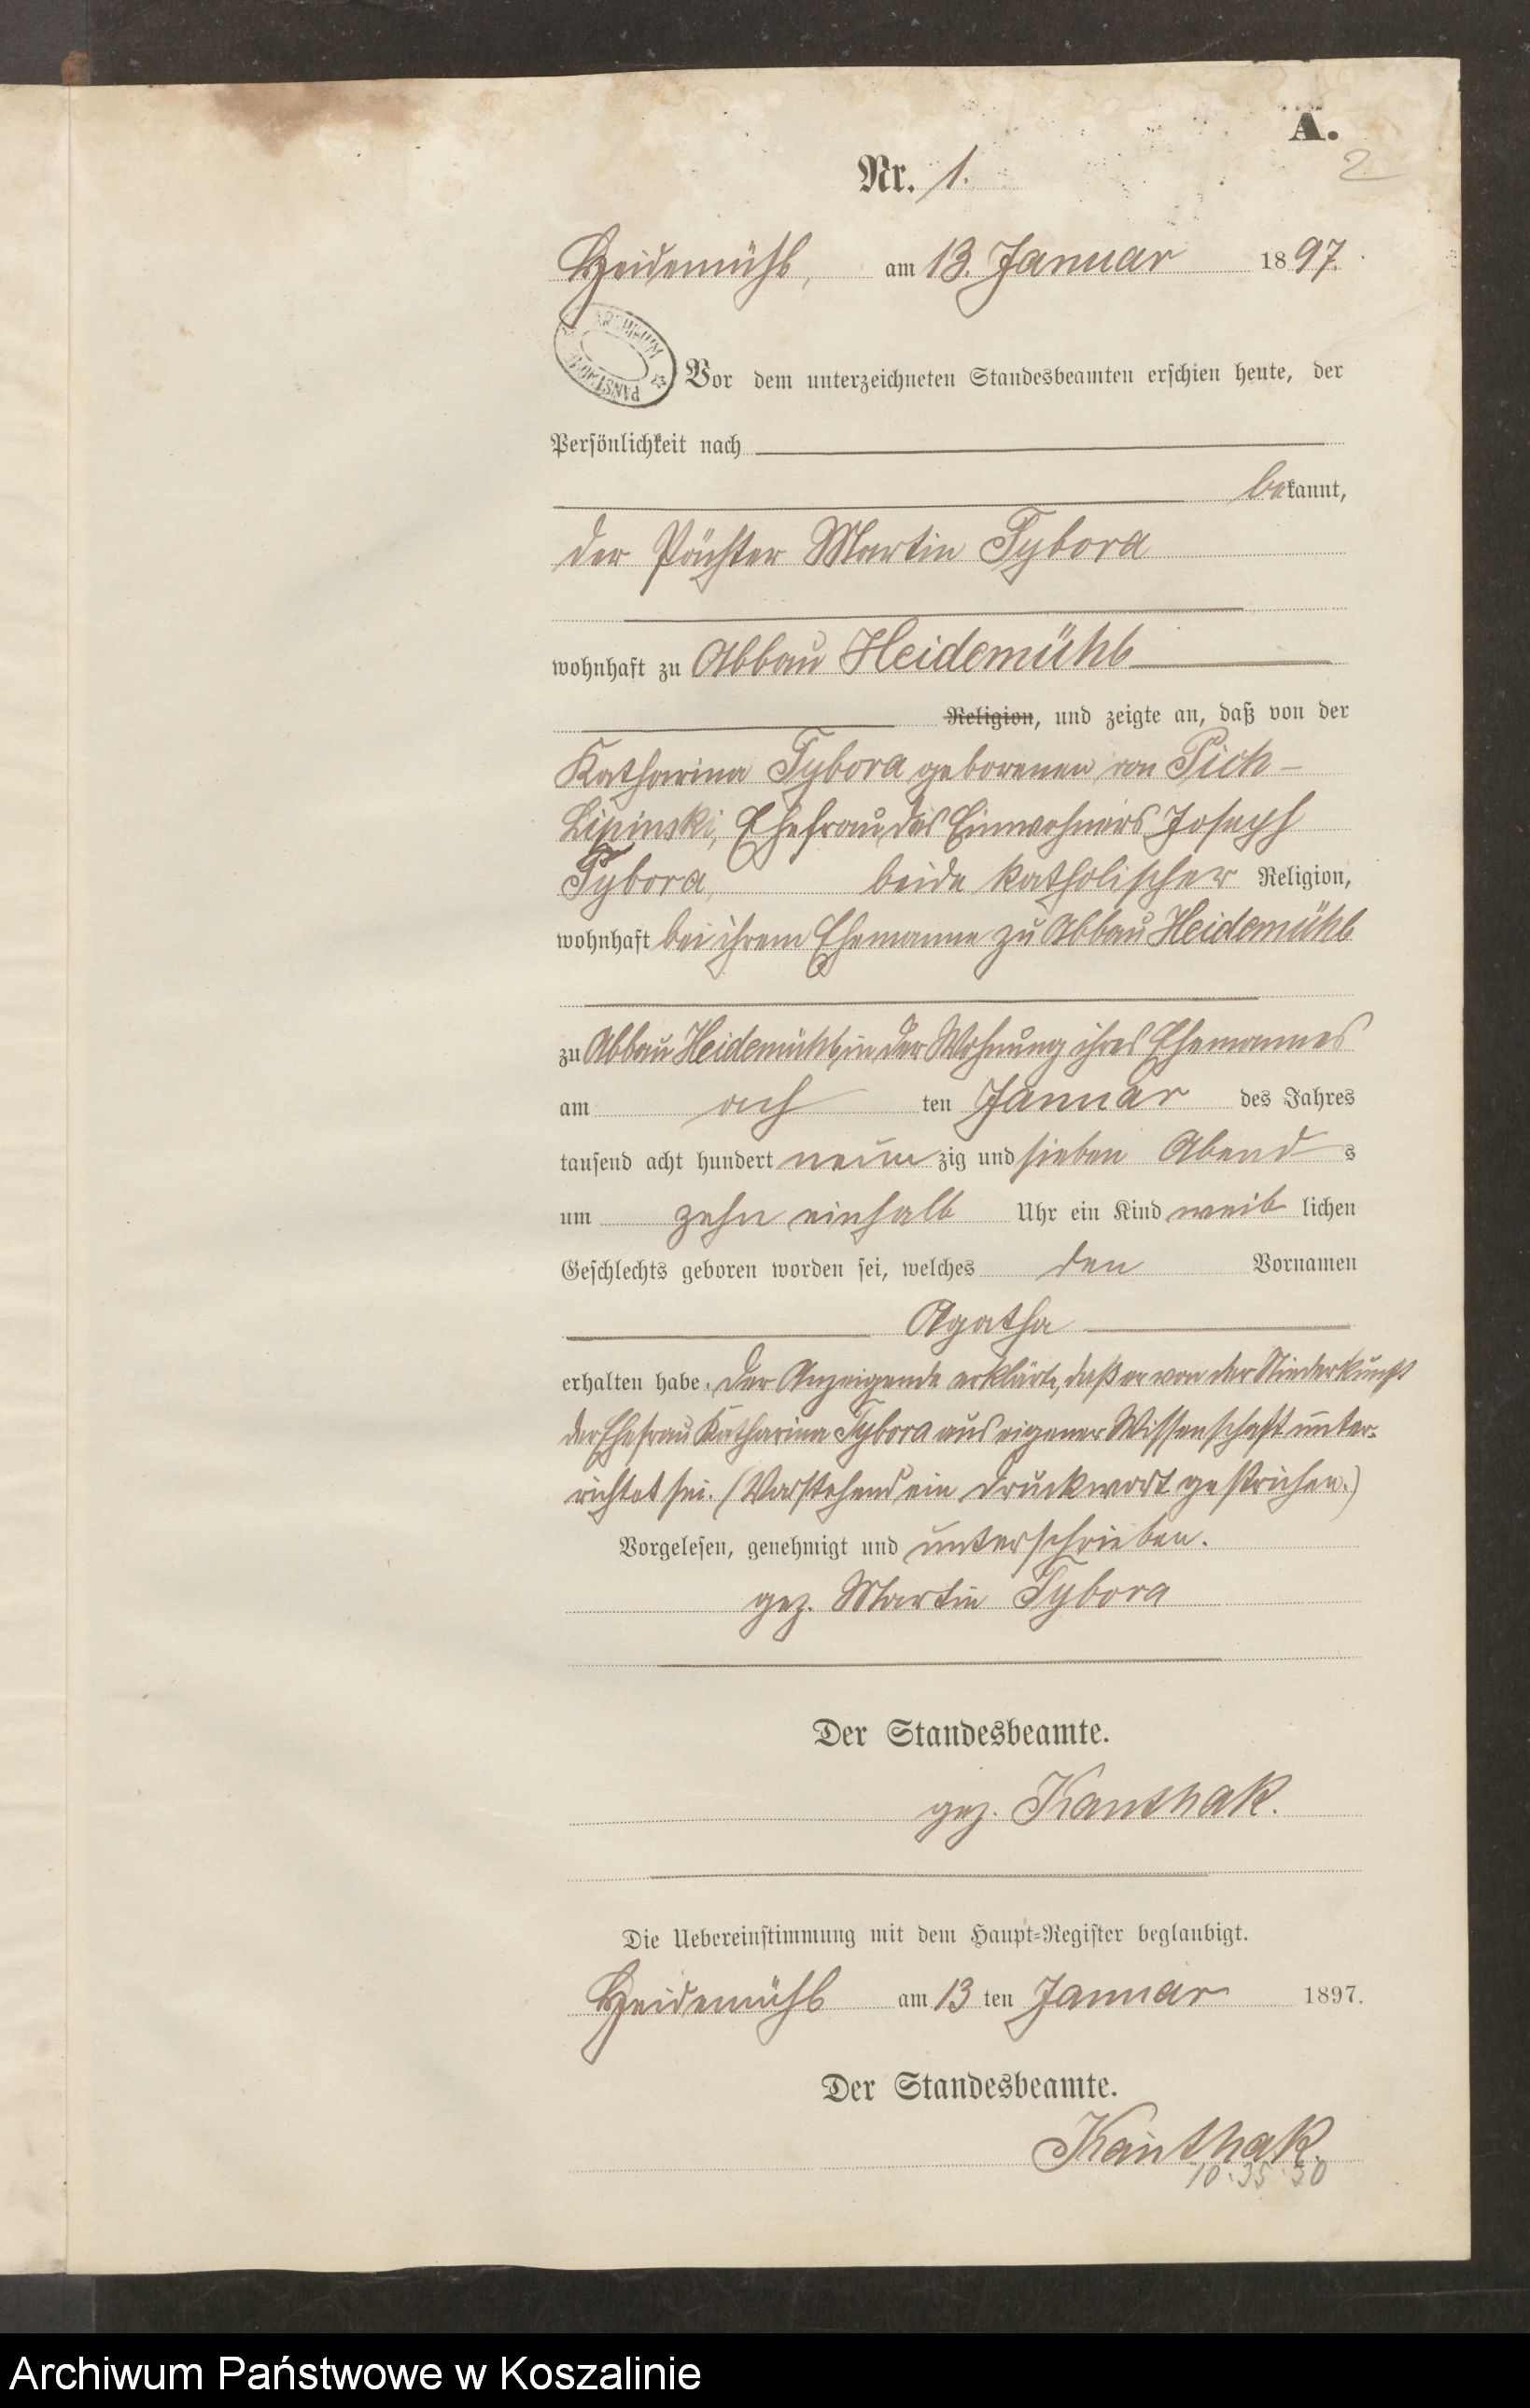 A.
2
Nr. 1.
Heidemühl, am 13. Januar 1897.
ARCHIWUM PAŃSTWOWE
Vor dem unterzeichneten Standesbeamten erschien heute, der
Persönlichkeit nach
bekannt,
der Pächter Martin Tybora
wohnhaft zu Abbau Heidemühl
Religion, und zeigte an, daß von der
Katharina Tybora geborenen von Pich-
Lipinski, Ehefrau des Einwohners Joseph
Tybora, beide katholischer Religion,
wohnhaft bei ihrem Ehemanne zu Abbau Heidemühl
zu Abbau Heidemühl, in der Wohnung ihres Ehemannes
am ach ten Januar des Jahres
tausend acht hundert neun zig und sieben Abend s
um zehn einhalb Uhr ein Kind weib lichen
Geschlechts geboren worden sei, welches den Vornamen
Agatha
erhalten habe. Der Anzeigende erklärte, daß er von der Niederkunft
der Ehefrau Katharina Tybora aus eigener Wissenschaft unter-
richtet sei. (Vorstehend ein Druckwort gestrichen.)
Vorgelesen, genehmigt und unterschrieben.
gez. Martin Tybora
Der Standesbeamte.
gez. Kanthak.
Die Uebereinstimmung mit dem Haupt-Register beglaubigt.
Heidemühl am 13 ten Januar 1897.
Der Standesbeamte.
Kanthak.
10.35.30
Archiwum Państwowe w Koszalinie